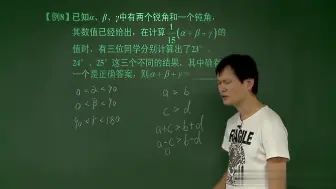 【例8】已知α、β、γ中有两个锐角和一个钝角，
其数值已经给出，在计算1/15(α+β+γ)的
值时，有三位同学分别计算出了23°、
24°、25°这三个不同的结果，其中确有
一个是正确答案，则α+β+γ=
0<α<90
0<β<90
90<γ<180
a>b
c>d
a+c>b+d
a-c>b-d
FRAGILE